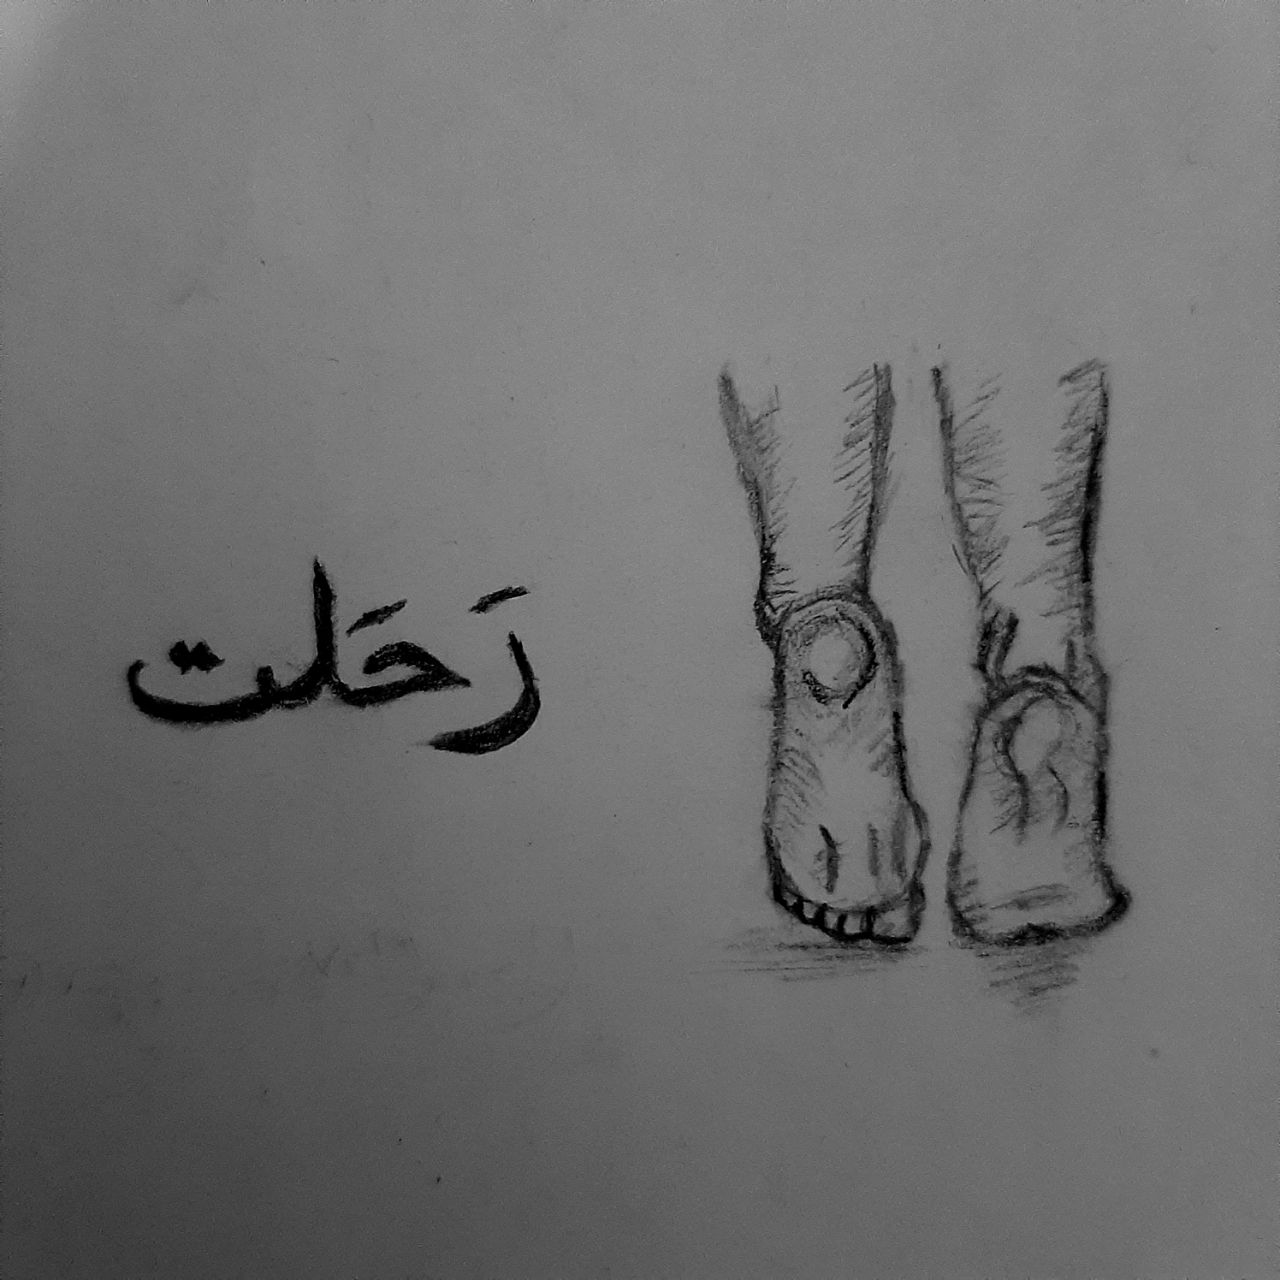 رَحَلت